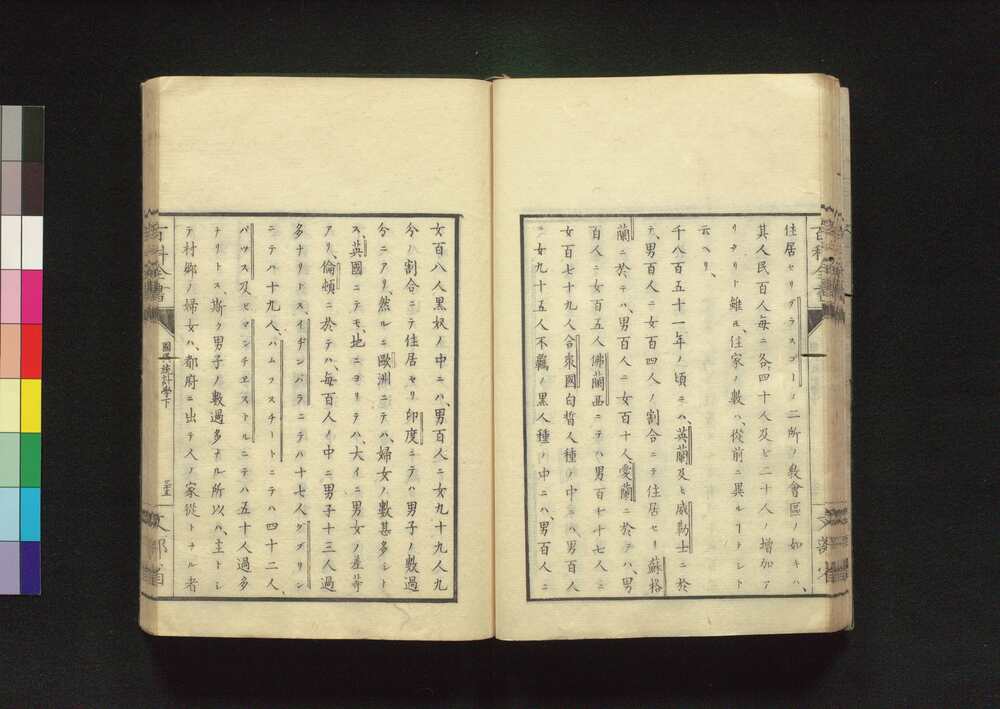 住居セリグラスゴーノ二所ノ教會區ノ如キハ、
其人民百人毎ニ各四十人及ビ二十人ノ增加ア
リタリト雖ㇵ、住家ノ數ハ、從前ニ異ルヿナシト
云ヘリ、
千八百五十一年ノ頃ニハ、英蘭及ヒ威勒士ニ於
テ、男百人ニ女百四人ノ割合ニテ住居セリ蘇格
蘭ニ於テハ、男百人ニ女百十人愛蘭ニ於テハ、男
百人ニ女百五人佛蘭西ニテハ男百七十七人ニ
女百七十九人合衆國白皙人種ノ中ニハ男百人
ニ女九十五人不羈ノ黒人種ノ中ニハ、男百人ニ
女百八人黒奴ノ中ニハ、男百人ニ女九十九人九
分ノ割合ニテ住居セリ印度ニテハ男子ノ數過
分ニアリ、然ルニ歐洲ニテハ、婦女ノ數甚多シト
ス、英國ニテモ、地ニヨリテハ、大イニ男女ノ差等
アリ、倫頓ニ於テハ、毎百人ノ中ニ男子十三人過
多ナリトス、イヂンバラニテハ十七人ダブリン
ニテハ十九人、ハムプスチートニテハ四十二人、
バツス及ヒマンチヱストルニテハ五十人過多
ナリトス、斯ク男子ノ數過多ナル所以ハ、主トシ
テ村鄉ノ婦女ハ、都府ニ出テ人ノ家從トナル者
百科全書
國民統計學下
文部省